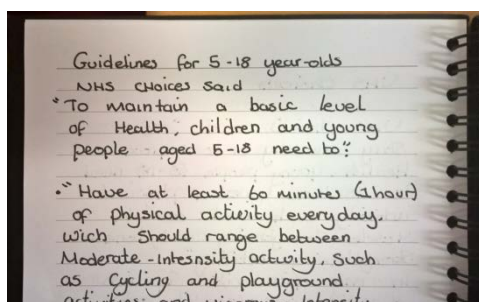 Guidelines for 5-18 year-olds
NHS CHOICES Said
"To maintain a basic level
of Health, children and young
people - aged 5-18 need to":
• "Have at least 60 minutes (1hour)
of physical activity everyday.
wich Should range between
Moderate-Intesnsity activity, Such
as Cycling and playground
activities and vigorous Intensity